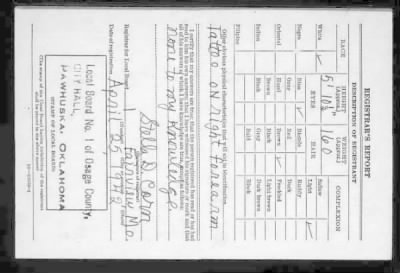 REGISTRAR'S REPORT
DESCRIPTION OF REGISTRANT
RACE
HEIGHT (Approx.)
WEIGHT (Approx.)
COMPLEXION
White ✓
5' 10½"
160
Sallow
EYES
HAIR
Light ✓
Negro
Blue ✓
Blonde
Ruddy
Gray
Red
Dark
Oriental
Hazel
Brown ✓
Freckled
Brown
Light brown
Indian
Black
Gray
Dark brown
Bald
Black
Filipino
Other obvious physical characteristics that will aid in identification
Tattoo on right forearm
I certify that my answers are true; that the person registered has read or has had read to him his own answers; that I have witnessed his signature or mark and that all of his answers of which I have knowledge are true, except as follows:
none to my knowledge
Registrar for Local Board
1
Fairview Mo.
Date of registration
April 25, 1942
Local Board No. 1 of Osage County,
CITY HALL,
PAWHUSKA, OKLAHOMA
(STAMP OF LOCAL BOARD)